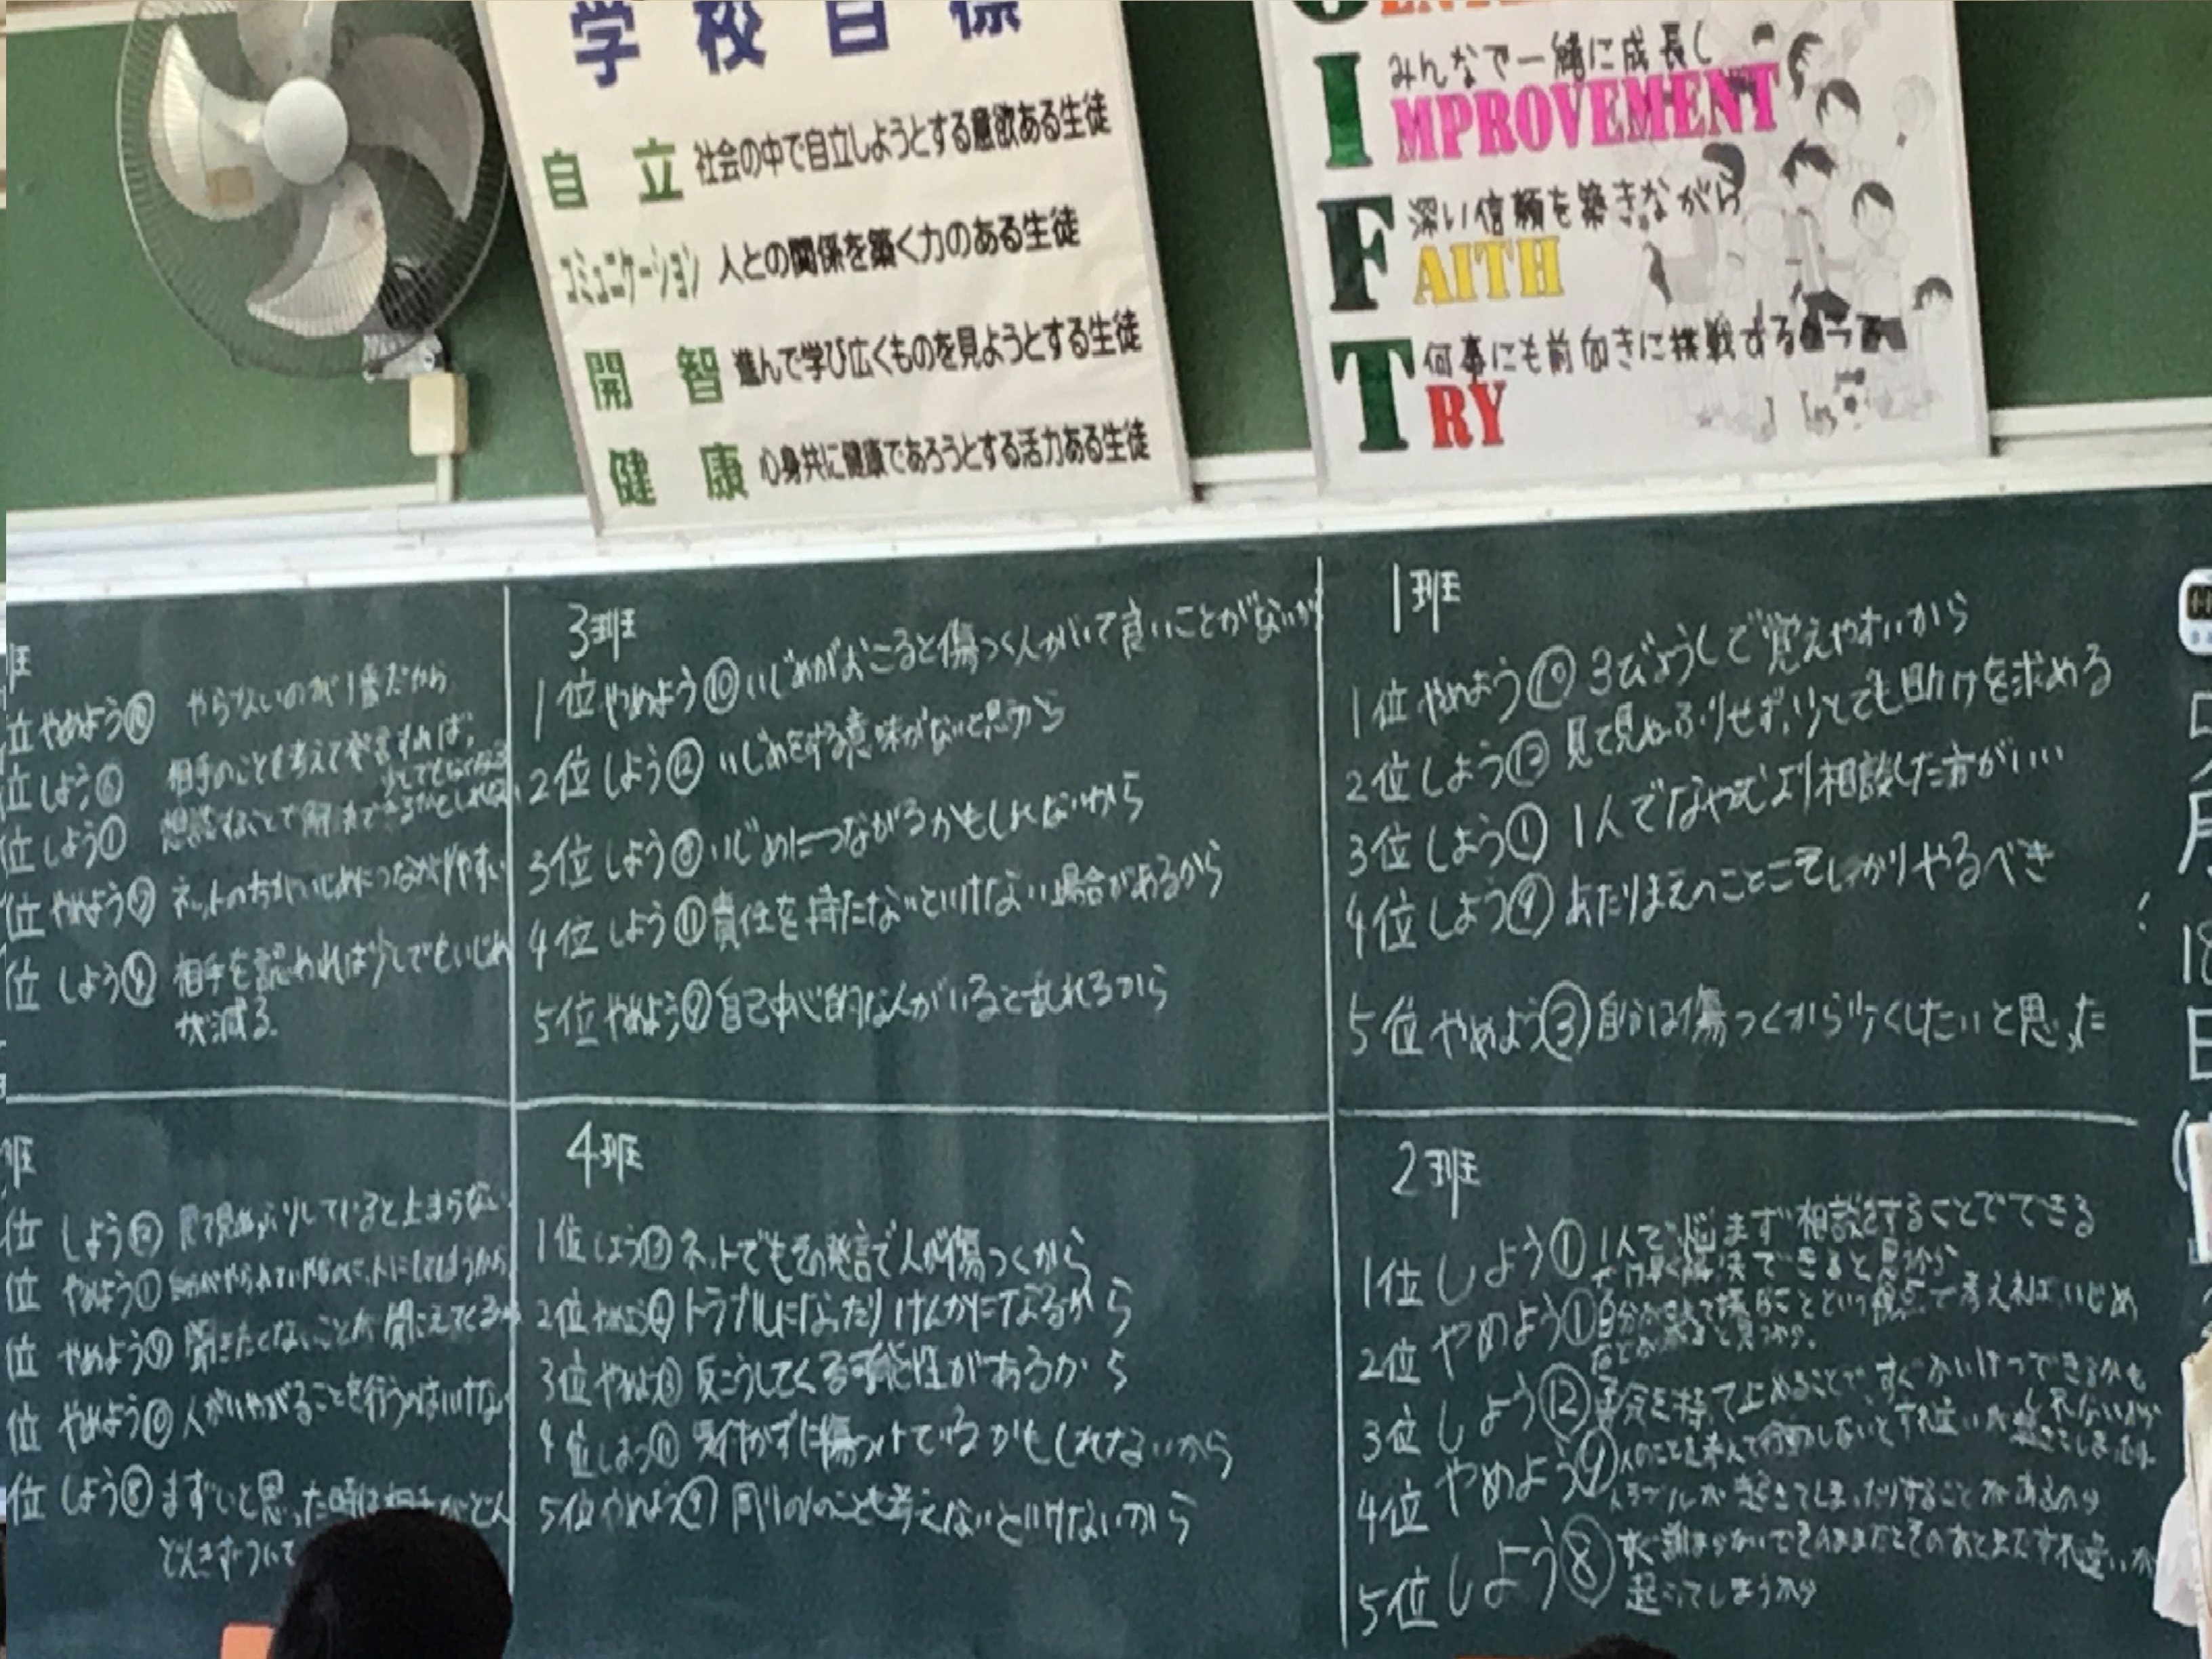 学校目標
自立 社会の中で自立しようとする意欲ある生徒
コミュニケーション 人との関係を築く力のある生徒
開智 進んで学び広くものを見ようとする生徒
健康 心身共に健康であろうとする活力ある生徒
みんなで一緒に成長し
IMPROVEMENT
深い信頼を築きながら
FAITH
何事にも前向きに挑戦する
TRY
1班
1位 やめよう⑩ 3びょうしで覚えやすいから
2位 しよう⑬ 見て見ぬふりせず、少しでも助けを求める
3位 しよう① 1人でなやむより相談した方がいい
4位 しよう④ あたりまえのことこそしっかりやるべき
5位 やめよう③ 自分は傷つくから少なくしたいと思った
2班
1位 しよう① 1人で悩まず相談をすることでできる
だけ早く解決できると思うから
2位 やめよう①
いじめ
などが減ると思うから。
3位 しよう⑫ 自分を持って止めることで、すぐかいけつできるかも
しれないから
4位 やめよう⑨ 人のことを考えて行動しないとすれ違いが起きてしまったり
トラブルが起きてしまったりすることがあるから
5位 しよう⑧ すぐ謝まらないでそのままだとそのあとまたすれ違いが
起こってしまうから
3班
1位 やめよう⑩ いじめがおこると傷つく人がいて良いことがないか
2位 しよう⑫ いじめをする意味がないと思うから
3位 しよう⑧ いじめにつながるかもしれないから
4位 しよう⑪ 責任を持たないといけない場合があるから
5位 やめよう⑨ 自己中心的な人がいると乱れるから
4班
1位 しよう⑬ ネットでもその発言で人が傷つくから
2位 やめよう トラブルになったりけんかになるから
3位 やめよう 反こうしてくる可能性があるから
4位 しよう⑪ 気付かずに傷つけているかもしれないから
5位 やめよう⑨ 周りの人のことも考えないといけないから
班
位 やめよう⑩ やらないのが1番だから
位 しよう⑥ 相手のことも考えて発言すれば、
少しでもなくなる
位 しよう① 相談することで解決できるかもしれない
位 やめよう⑦ ネットの方がいじめにつながりやすい
位 しよう⑨ 相手を認めれば少しでもいじめ
が減る。
班
位 しよう⑫ 見て見ぬふりしていると止まらない
位 やめよう①
位 やめよう⑨ 聞きたくないことが聞こえてくる
位 やめよう⑩ 人がいやがることを行うのはいけない
位 しよう⑧ まずいと思った時は相手がどん
どんきずついて
月
18
日